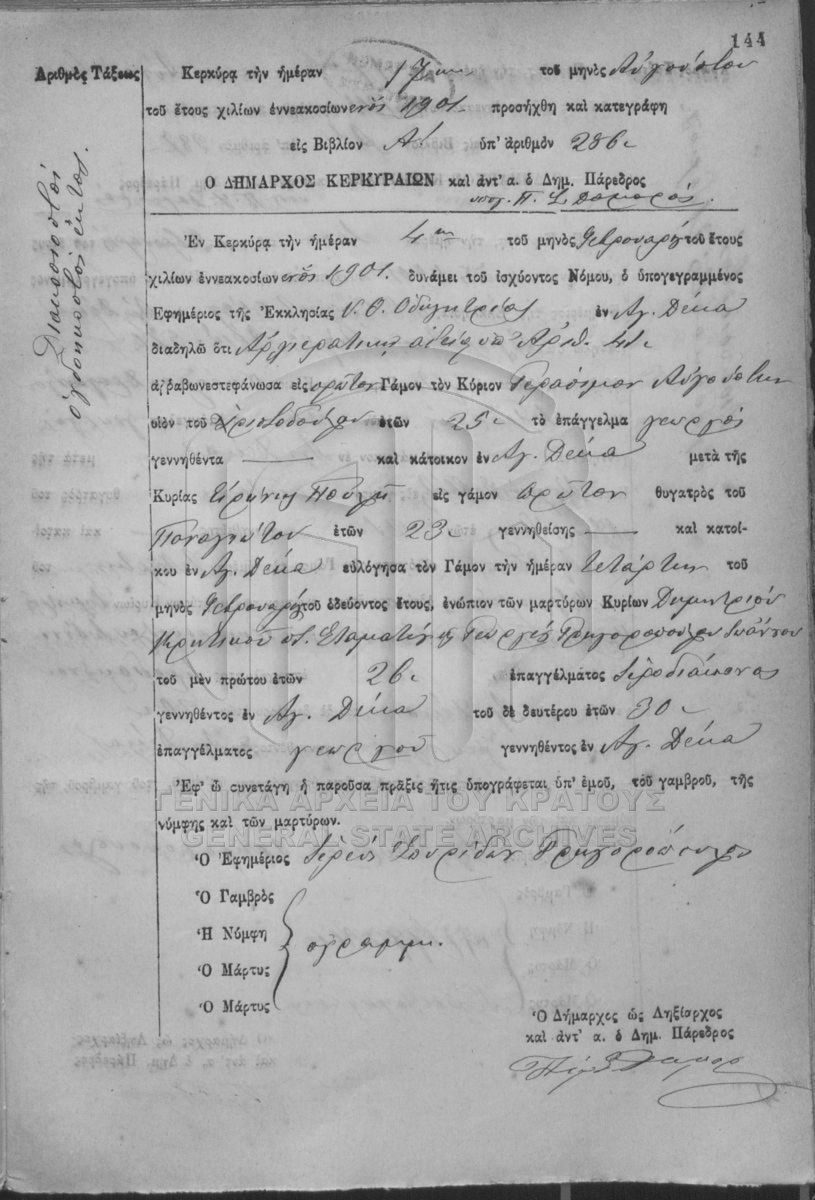 144
Ἀριθμὸς Τάξεως
Διακοσιοστὸς
ὀγδοηκοστὸς ἕκτος.
Κερκύρᾳ τὴν ἡμέραν 17ην τοῦ μηνὸς Αὐγούστου
τοῦ ἔτους χιλίων ἐννεακοσίων ἑνὸς 1901. προσήχθη καὶ κατεγράφη
εἰς Βιβλίον Αον ὑπ' ἀριθμὸν 286
Ο ΔΗΜΑΡΧΟΣ ΚΕΡΚΥΡΑΙΩΝ καὶ ἀντ' α. ὁ Δημ. Πάρεδρος
υπογ. Π. Σ.
Ἐν Κερκύρᾳ τὴν ἡμέραν 4ην τοῦ μηνὸς Φεβρουαρίου τοῦ ἔτους
χιλίων ἐννεακοσίων ἑνὸς 1901. δυνάμει τοῦ ἰσχύοντος Νόμου, ὁ ὑπογεγραμμένος
Ἐφημέριος τῆς Ἐκκλησίας Υ. Θ. Οδηγητρίας ἐν Αγ. Δέκα
διαδηλῶ ὅτι Ἀρχιερατικῇ ἀδείᾳ ὑπ' Ἀριθ. 41
ἀῤῥαβωνεστεφάνωσα εἰς πρῶτον Γάμον τὸν Κύριον Γεράσιμον Αὐγούστην
υἱὸν τοῦ Χριστοδούλου ἐτῶν 25 τὸ ἐπάγγελμα γεωργὸς
γεννηθέντα — καὶ κάτοικον ἐν Αγ. Δέκα μετὰ τῆς
Κυρίας Εἰρήνης Πουλῆ εἰς γάμον πρῶτον θυγατρὸς τοῦ
Παναγιώτου ἐτῶν 23 γεννηθείσης — καὶ κατοί-
κου ἐν Αγ. Δέκα εὐλόγησα τὸν Γάμον τὴν ἡμέραν τετάρτην τοῦ
μηνὸς Φεβρουαρίου τοῦ ὁδεύοντος ἔτους, ἐνώπιον τῶν μαρτύρων Κυρίων Δημητρίου
Κρητικοῦ Σταματίου Γεωργίου Γρηγοροπούλου Ἰωάννου
τοῦ μὲν πρώτου ἐτῶν 26 ἐπαγγέλματος Ἱεροδιάκονος
γεννηθέντος ἐν Αγ. Δέκα τοῦ δὲ δευτέρου ἐτῶν 30
ἐπαγγέλματος γεωργοῦ γεννηθέντος ἐν Αγ. Δέκα
Ἐφ' ᾧ συνετάγη ἡ παροῦσα πρᾶξις ἥτις ὑπογράφεται ὑπ' ἐμοῦ, τοῦ γαμβροῦ, τῆς
νύμφης καὶ τῶν μαρτύρων.
ΓΕΝΙΚΑ ΑΡΧΕΙΑ ΤΟΥ ΚΡΑΤΟΥΣ
GENERAL STATE ARCHIVES
Ὁ Ἐφημέριος Ἱερεὺς Σπυρίδων Γρηγορόπουλος
Ὁ Γαμβρὸς
Ἡ Νύμφη
Ὁ Μάρτυς
Ὁ Μάρτυς
Ὁ Δήμαρχος ὡς Ληξίαρχος
καὶ ἀντ' α. ὁ Δημ. Πάρεδρος